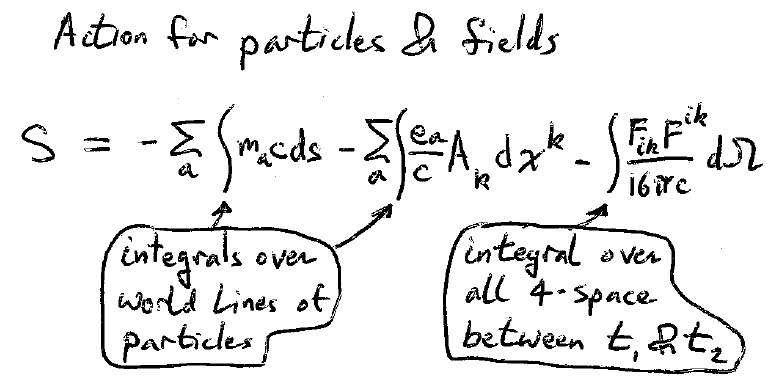 Action for particles & fields
S = - Σ_a ∫ m_a c ds - Σ_a ∫ e_a/c A_k dx^k - ∫ F_ik F^ik / 16πc dΩ
integrals over
world lines of
particles
integral over
all 4-space
between t₁ & t₂